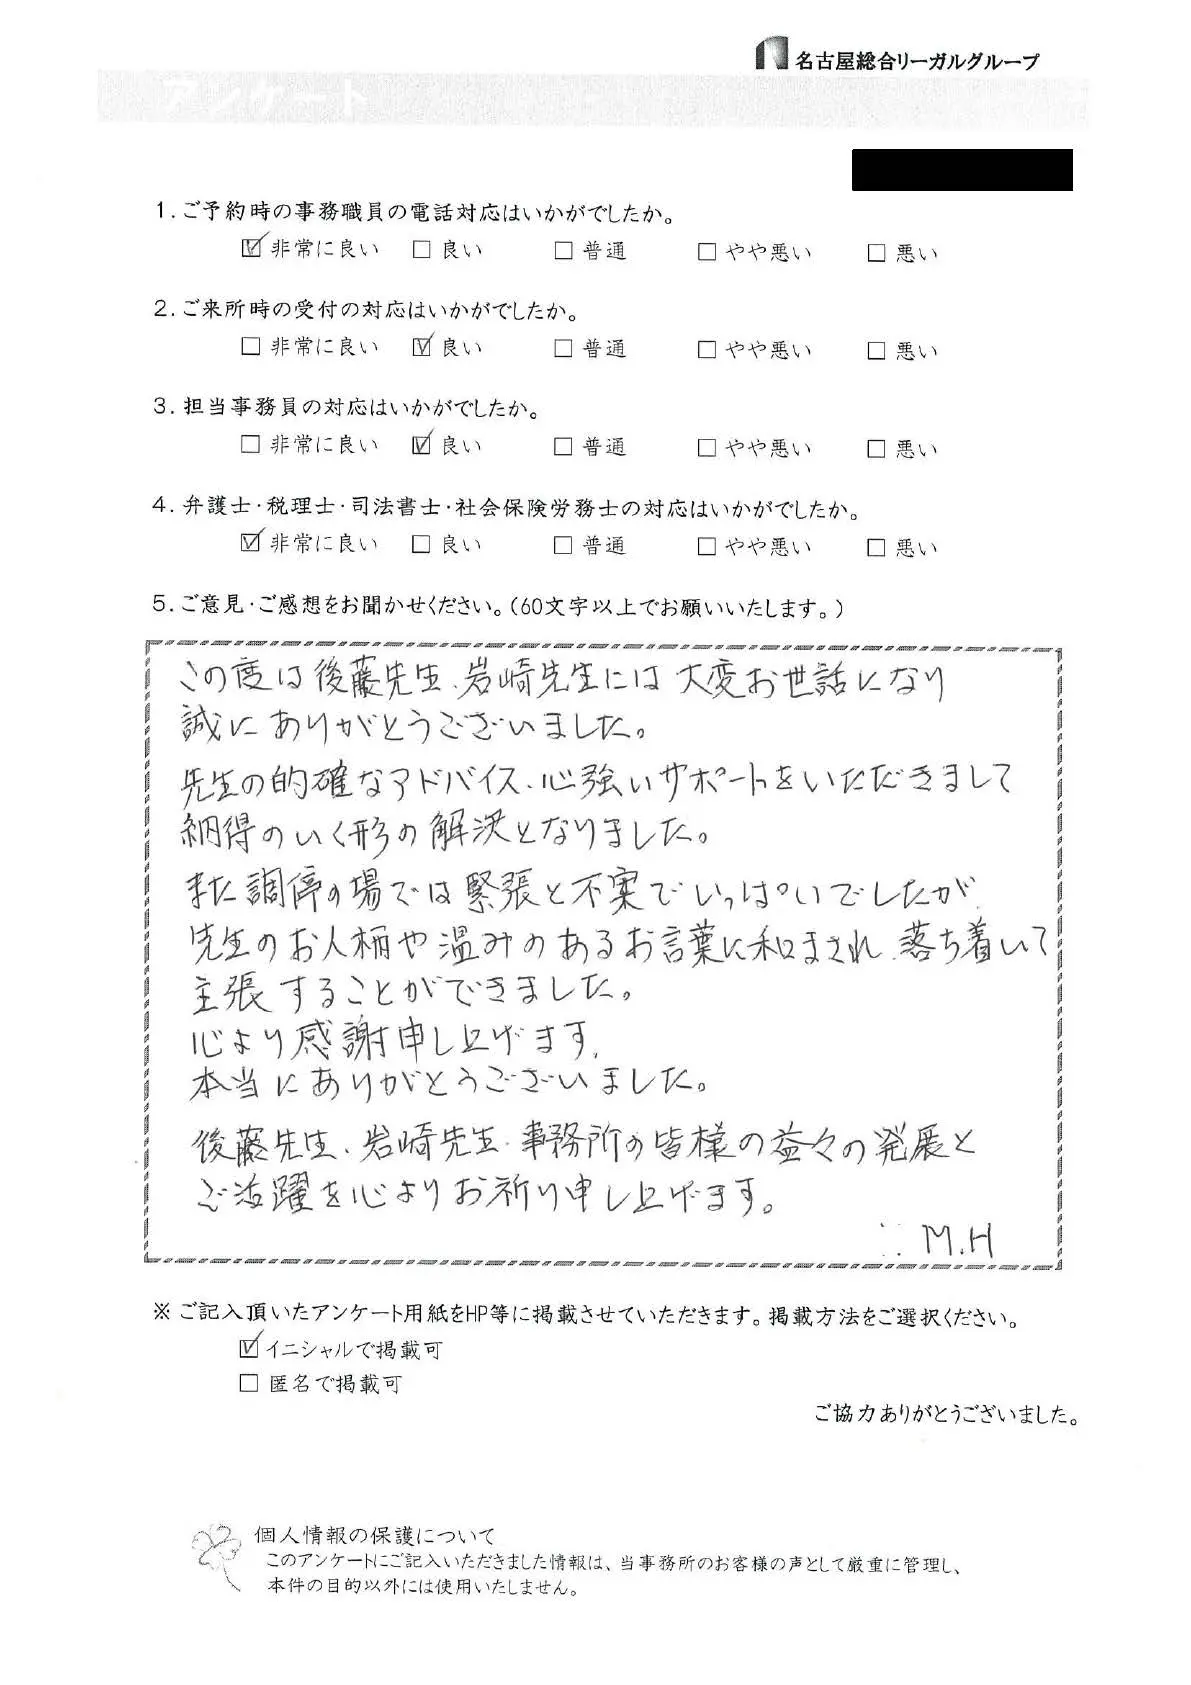 名古屋総合リーガルグループ
アンケート
1.ご予約時の事務職員の電話対応はいかがでしたか。
☑ 非常に良い □ 良い □ 普通 □ やや悪い □ 悪い
2.ご来所時の受付の対応はいかがでしたか。
□ 非常に良い ☑ 良い □ 普通 □ やや悪い □ 悪い
3.担当事務員の対応はいかがでしたか。
□ 非常に良い ☑ 良い □ 普通 □ やや悪い □ 悪い
4.弁護士・税理士・司法書士・社会保険労務士の対応はいかがでしたか。
☑ 非常に良い □ 良い □ 普通 □ やや悪い □ 悪い
5.ご意見・ご感想をお聞かせください。(60文字以上でお願いいたします。)
この度は後藤先生、岩崎先生には大変お世話になり
誠にありがとうございました。
先生の的確なアドバイス、心強いサポートをいただきまして
納得のいく形の解決となりました。
また調停の場では緊張と不安でいっぱいでしたが、
先生のお人柄や温みのあるお言葉に和まされ、落ち着いて
主張することができました。
心より感謝申し上げます、
本当にありがとうございました。
後藤先生、岩崎先生、事務所の皆様の益々の発展と
ご活躍を心よりお祈り申し上げます。
M.H
※ ご記入頂いたアンケート用紙をHP等に掲載させていただきます。掲載方法をご選択ください。
☑ イニシャルで掲載可
□ 匿名で掲載可
ご協力ありがとうございました。
個人情報の保護について
このアンケートにご記入いただきました情報は、当事務所のお客様の声として厳重に管理し、
本件の目的以外には使用いたしません。